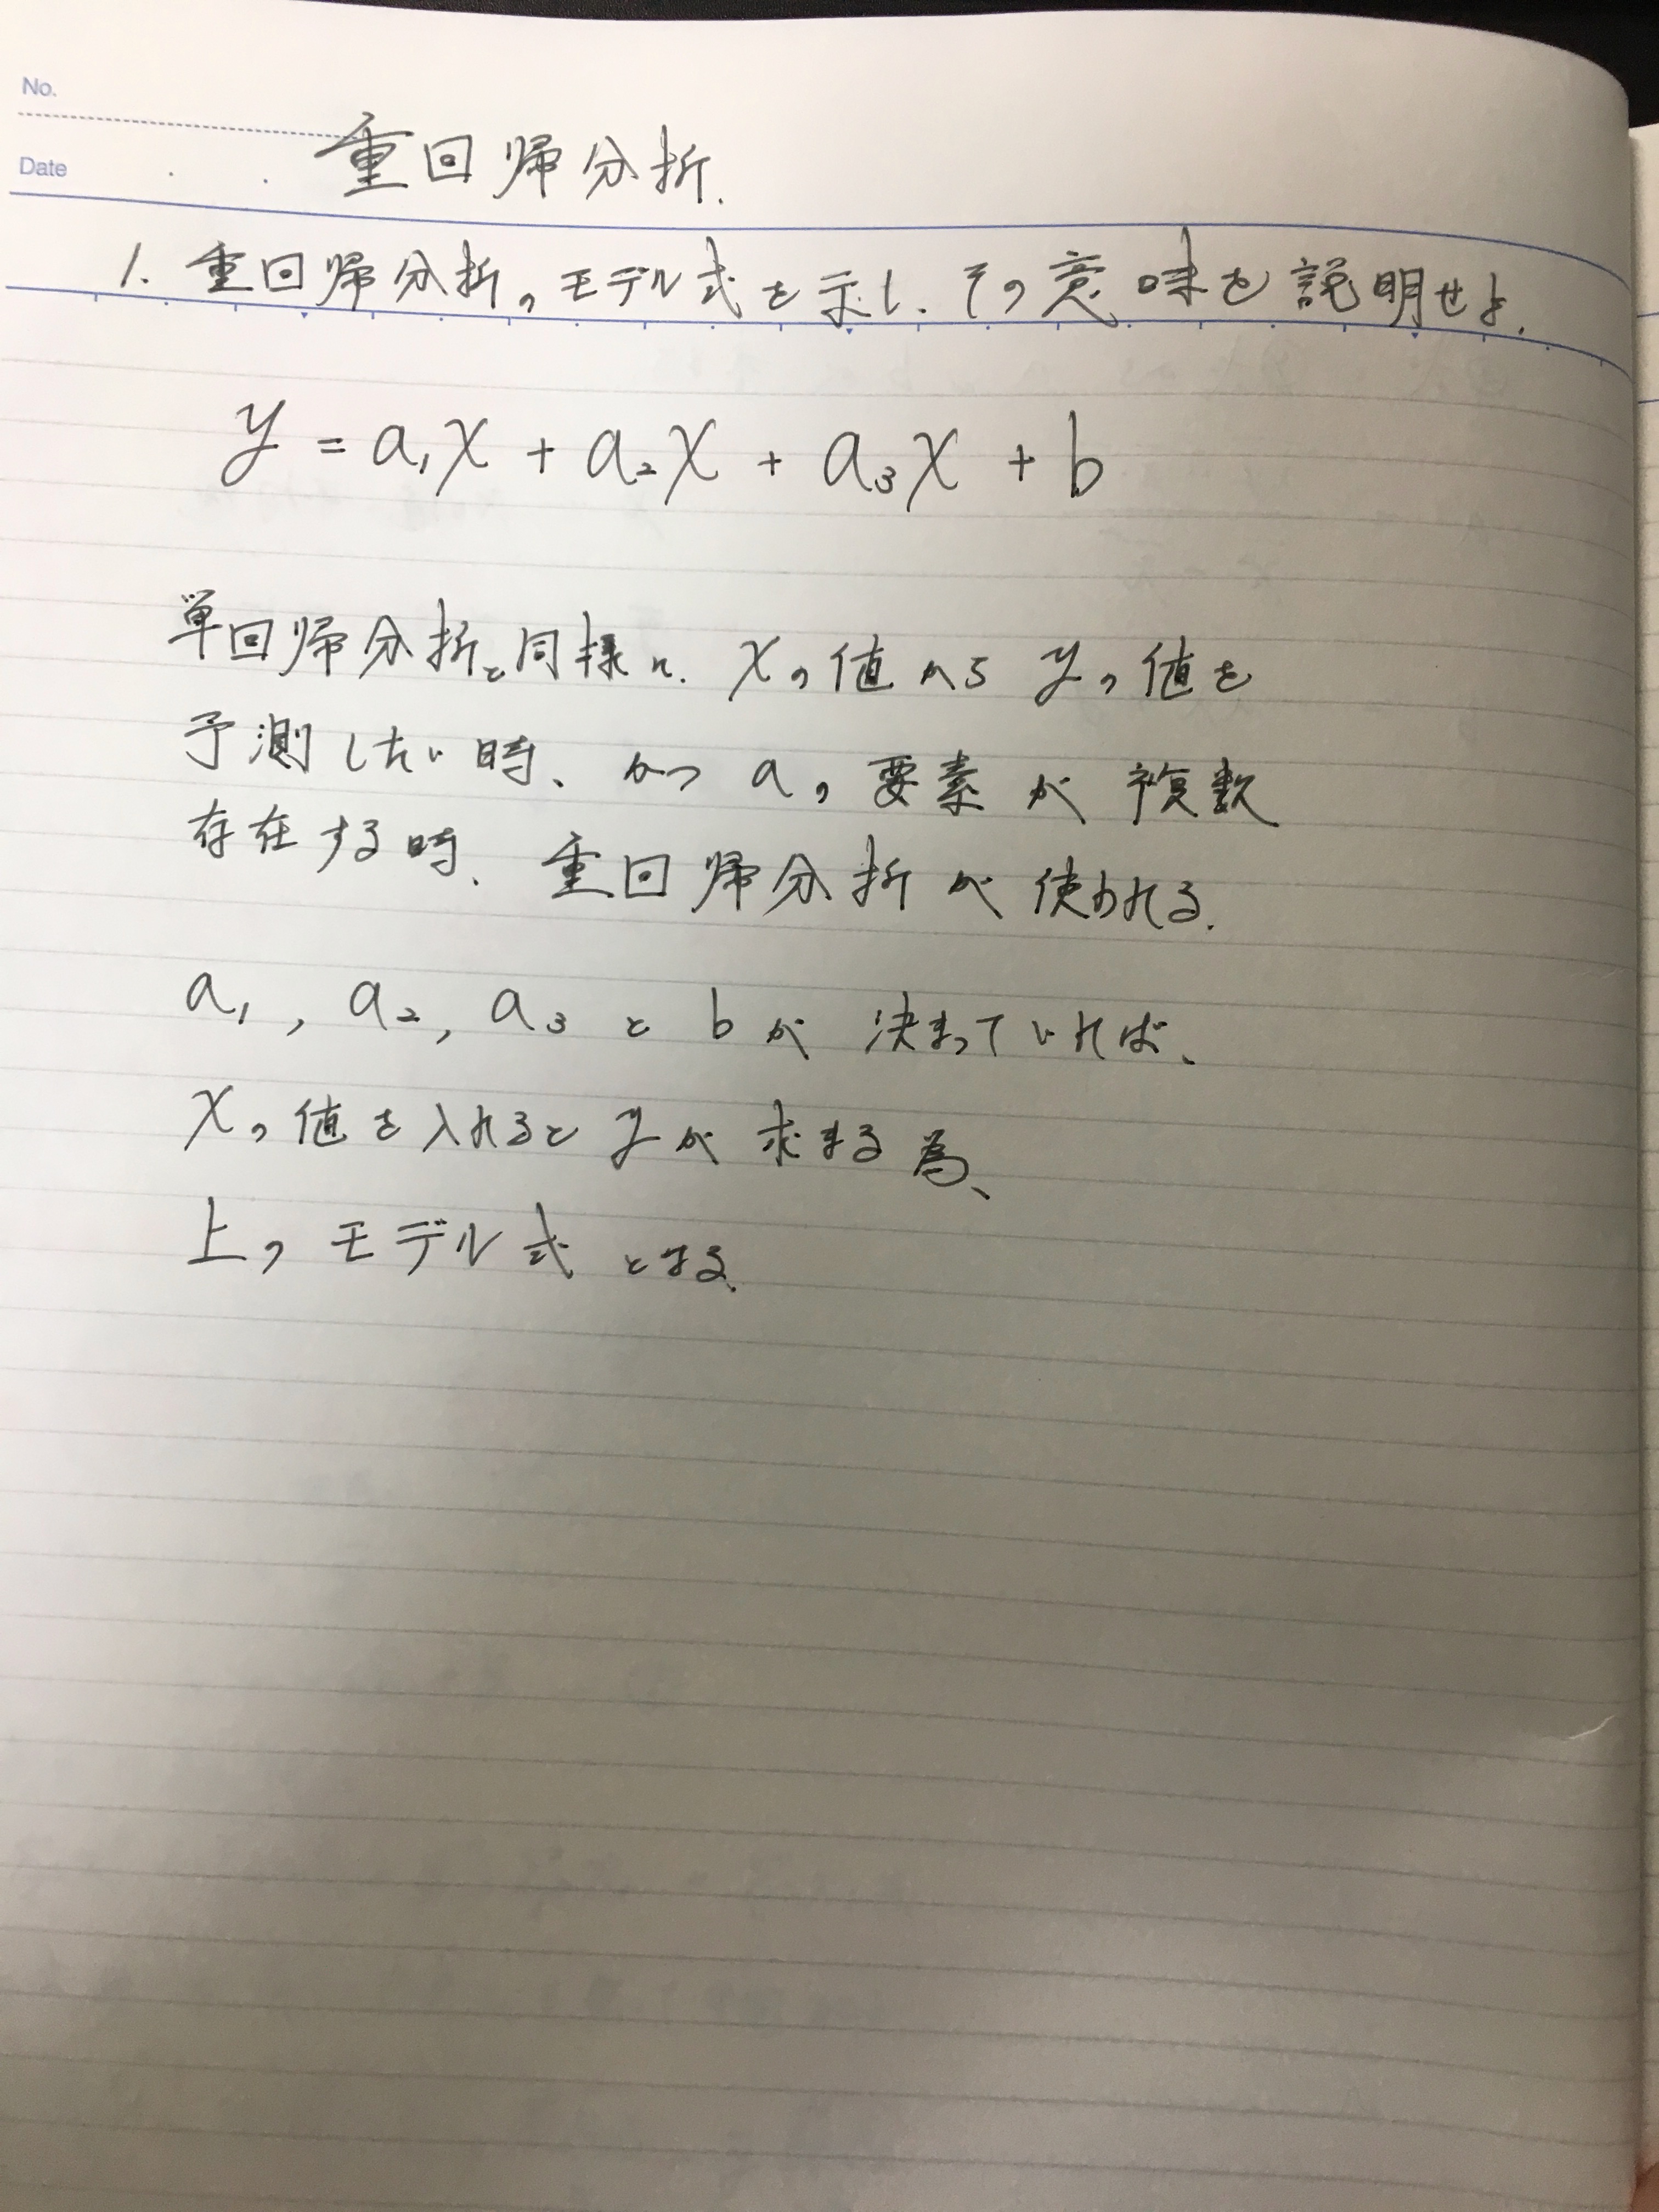 No.
Date
重回帰分析.
1. 重回帰分析のモデル式を示し、その意味を説明せよ.
y = a₁x + a₂x + a₃x + b
単回帰分析と同様に、xの値からyの値を
予測したい時、かつaの要素が複数
存在する時、重回帰分析が使われる.
a₁, a₂, a₃とbが決まっていれば、
xの値を入れるとyが求まる為、
上のモデル式となる.